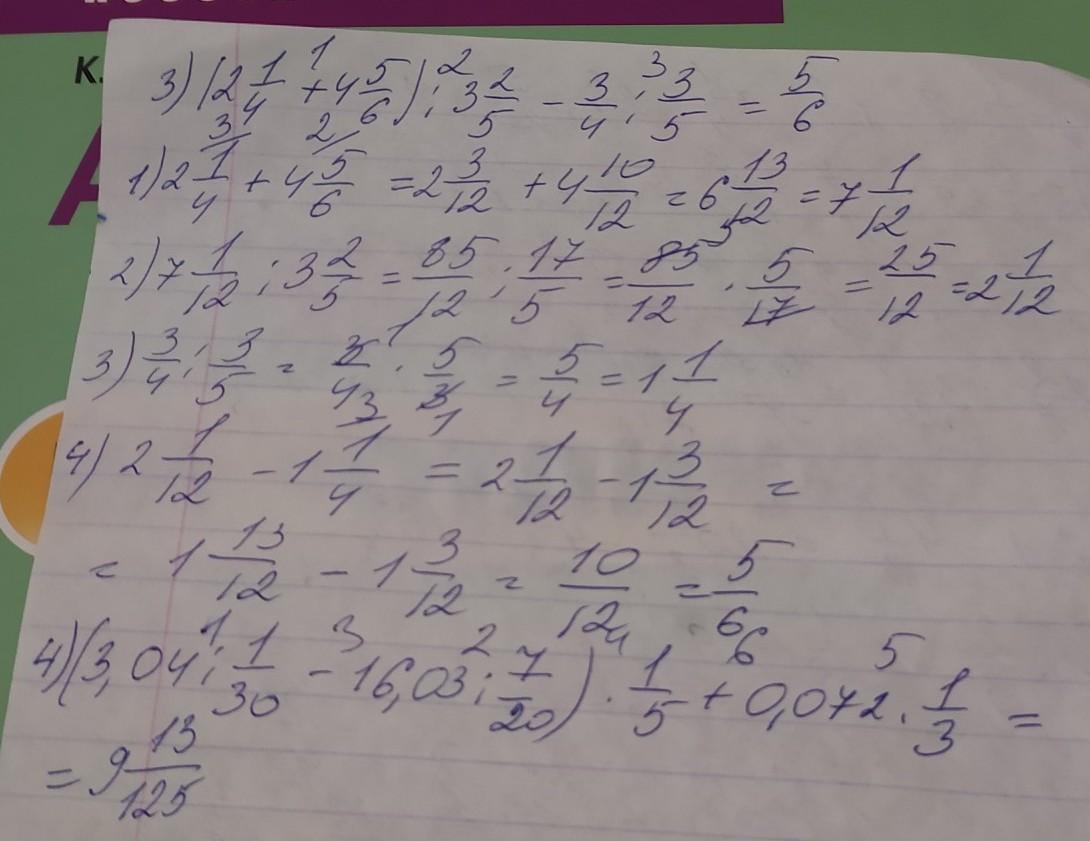 К.
3) (2 1/4 + 4 5/6) : 3 2/5 - 3/4 : 3/5 = 5/6
1) 2 1/4 + 4 5/6 = 2 3/12 + 4 10/12 = 6 13/12 = 7 1/12
2) 7 1/12 : 3 2/5 = 85/12 : 17/5 = 85/12 · 5/17 = 25/12 = 2 1/12
3) 3/4 : 3/5 = 3/4 · 5/3 = 5/4 = 1 1/4
4) 2 1/12 - 1 1/4 = 2 1/12 - 1 3/12 =
= 1 13/12 - 1 3/12 = 10/12 = 5/6
4) (3,04 : 1/30 - 16,03 : 7/20) · 1/5 + 0,072 · 1/3 =
= 9 13/125